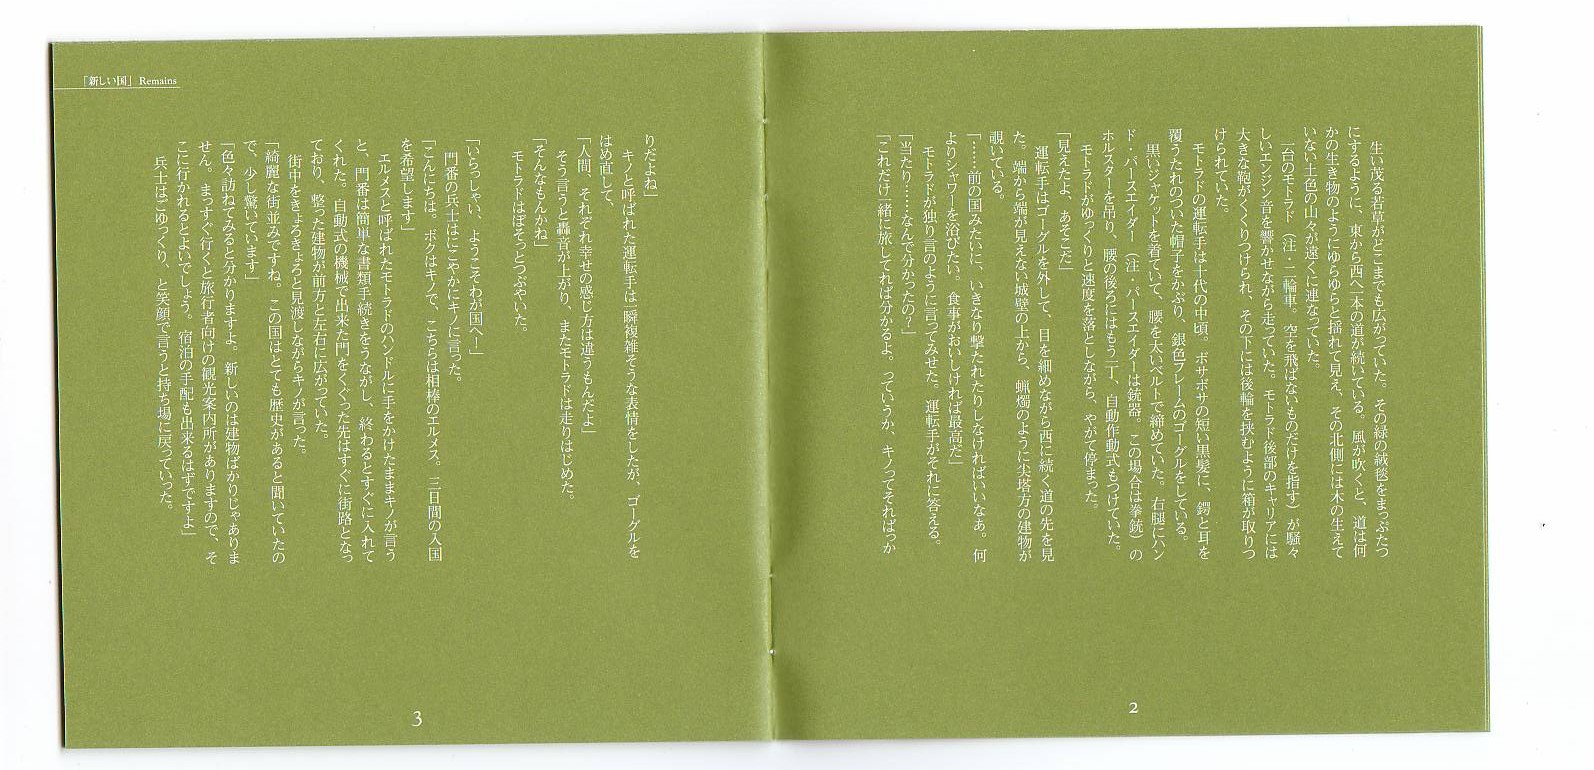 生い茂る若草がどこまでも広がっていた。その緑の絨毯をまっぷたつ
にするように、東から西へ一本の道が続いている。風が吹くと、道は何
かの生き物のようにゆらゆらと揺れて見え、その北側には木の生えて
いない土色の山々が遠くに連なっていた。
一台のモトラド（注・二輪車。空を飛ばないものだけを指す）が騒々
しいエンジン音を響かせながら走っていた。モトラド後部のキャリアには
大きな鞄がくくりつけられ、その下には後輪を挟むように箱が取りつ
けられていた。
モトラドの運転手は十代の中頃。ボサボサの短い黒髪に、鍔と耳を
覆うたれのついた帽子をかぶり、銀色フレームのゴーグルをしている。
黒いジャケットを着ていて、腰を太いベルトで締めていた。右腿にハン
ド・パースエイダー（注・パースエイダーは銃器。この場合は拳銃）の
ホルスターを吊り、腰の後ろにはもう一丁、自動作動式もつけていた。
モトラドがゆっくりと速度を落としながら、やがて停まった。
「見えたよ、あそこだ」
運転手はゴーグルを外して、目を細めながら西に続く道の先を見
た。端から端が見えない城壁の上から、蝋燭のように尖塔方の建物が
覗いている。
「……前の国みたいに、いきなり撃たれたりしなければいいなぁ。何
よりシャワーを浴びたい。食事がおいしければ最高だ」
モトラドが独り言のように言ってみせた。運転手がそれに答える。
「当たり……なんで分かったの？」
「これだけ一緒に旅してれば分かるよ。っていうか、キノってそればっか
2
「新しい国」 Remains
りだよね」
キノと呼ばれた運転手は一瞬複雑そうな表情をしたが、ゴーグルを
はめ直して、
「人間、それぞれ幸せの感じ方は違うもんだよ」
そう言うと轟音が上がり、またモトラドは走りはじめた。
「そんなもんかね」
モトラドはぼそっとつぶやいた。
「いらっしゃい、ようこそわが国へ！」
門番の兵士はにこやかにキノに言った。
「こんにちは。ボクはキノで、こちらは相棒のエルメス。三日間の入国
を希望します」
エルメスと呼ばれたモトラドのハンドルに手をかけたままキノが言う
と、門番は簡単な書類手続きをうながし、終わるとすぐに入れて
くれた。自動式の機械で出来た門をくぐった先はすぐに街路となっ
ており、整った建物が前方と左右に広がっていた。
街中をきょろきょろと見渡しながらキノが言った。
「綺麗な街並みですね。この国はとても歴史があると聞いていたの
で、少し驚いています」
「色々訪ねてみると分かりますよ。新しいのは建物ばかりじゃありま
せん。まっすぐ行くと旅行者向けの観光案内所がありますので、そ
こに行かれるとよいでしょう。宿泊の手配も出来るはずですよ」
兵士はごゆっくり、と笑顔で言うと持ち場に戻っていった。
3